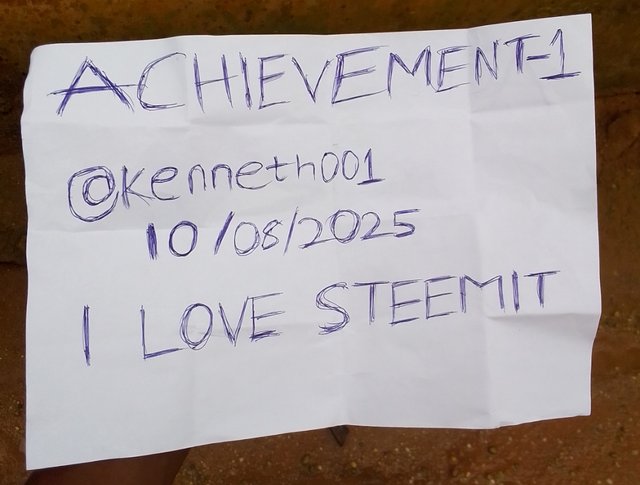 ACHIEVEMENT-1
@kenneth001
10/08/2025
I LOVE STEEMIT